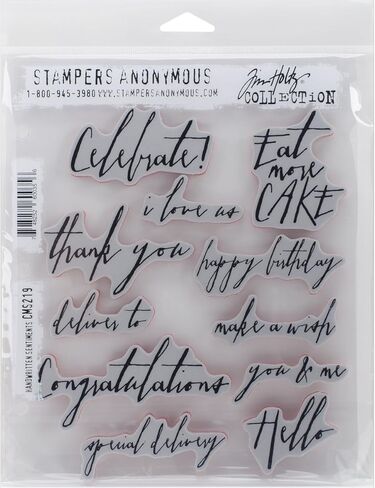 STAMPERS ANONYMOUS
1-800-945-3980 WWW.STAMPERSANONYMOUS.COM
Tim Holtz
COLLECTION
Celebrate!
Eat
more
CAKE
i love us
thank you
happy birthday
deliver to
make a wish
Congratulations
you & me
special delivery
Hello
HANDWRITTEN SENTIMENTS CMS219